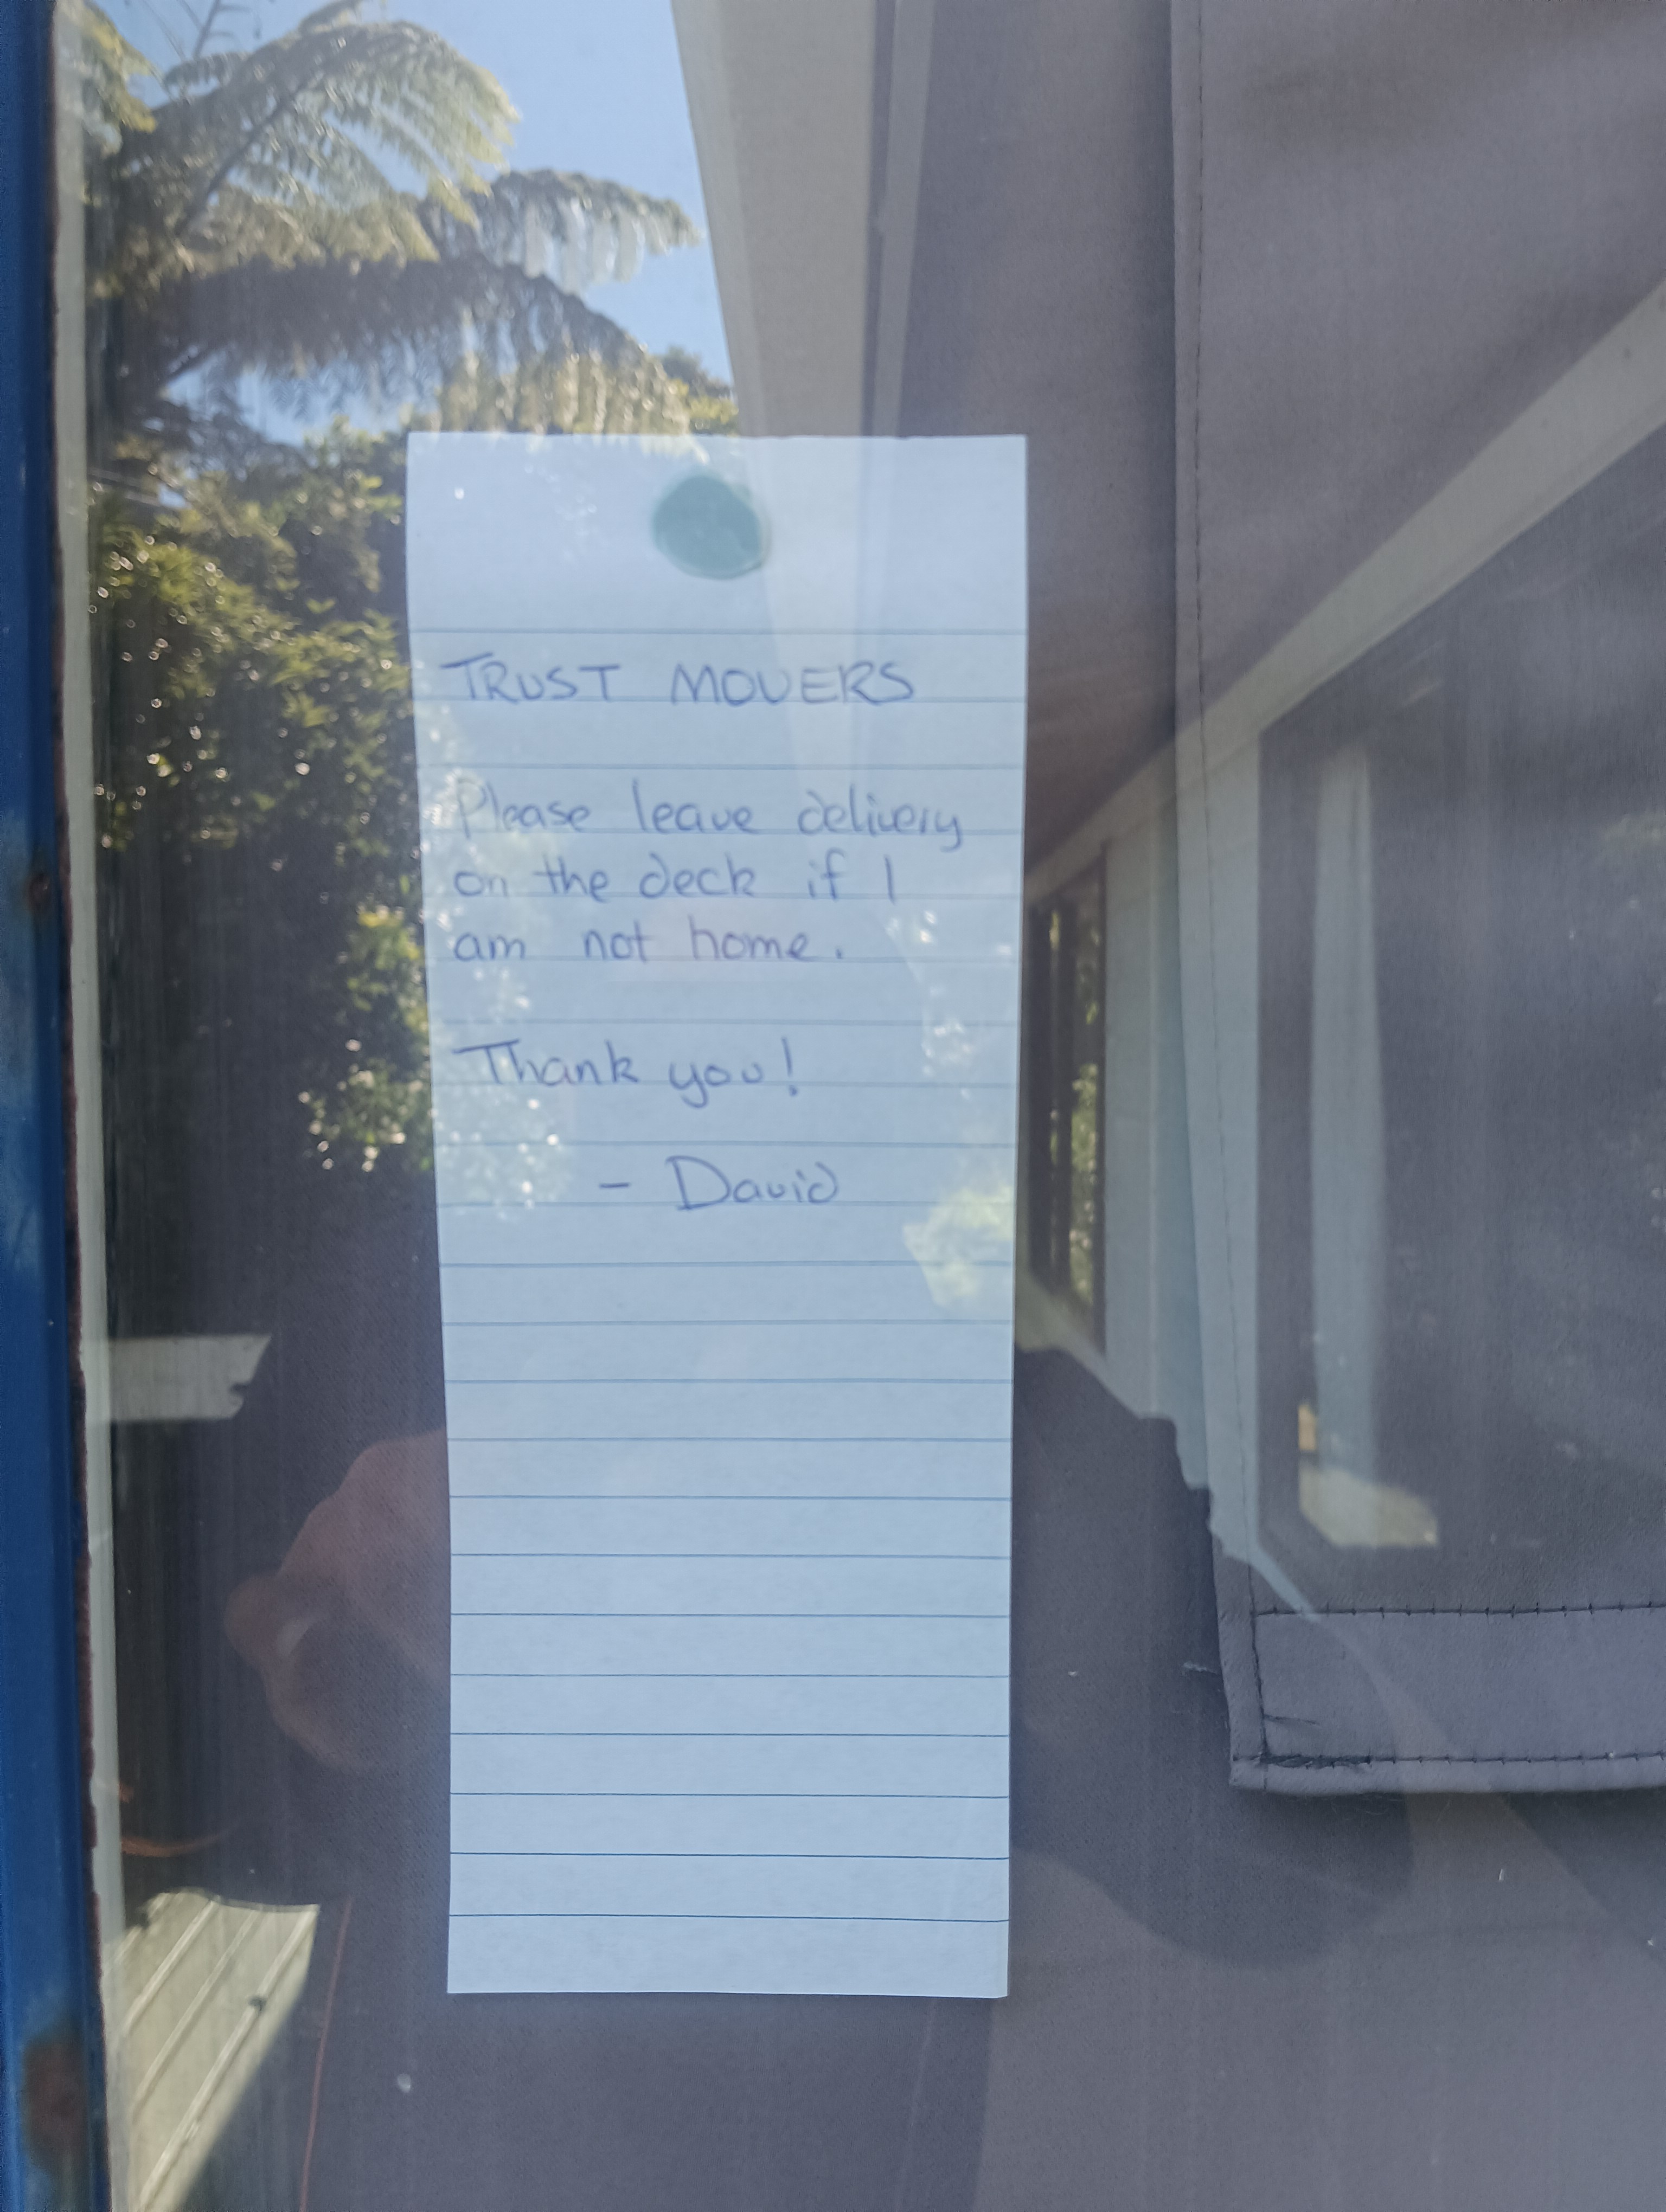 TRUST MOVERS
Please leave delivery
on the deck if I
am not home.
Thank you!
- David